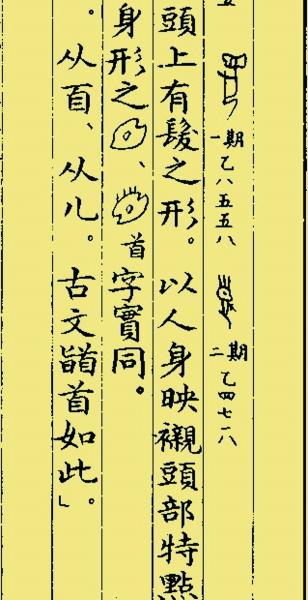 一期 乙八五五八 二期 乙四七一八
頭上有髮之形。以人身映襯頭部特點
身形之、首字實同。
。从𦣻、从儿。古文䭫首如此」。